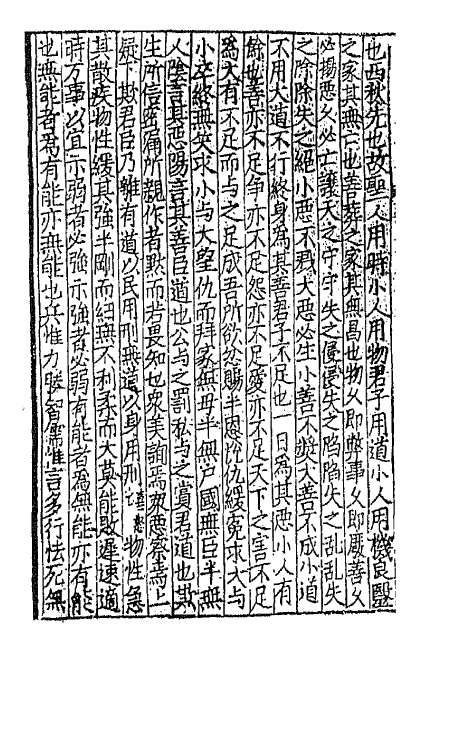 也西秋先也故聖人用時小人用物君子用道小人用機良毉
之家其無亡也善葬之家其無昌也物久即弊事久即厭善久
必揚惡久必亡讓天之守守失之侵侵失之陷陷失之乱乱失
之除除失之絕小惡不殄大惡必生小善不奬大善不成小道
不用大道不行終身為其善君子不足也一日為其惡小人有
餘也善亦不足争亦不足怨亦不足愛亦不足天下之害不足
為大有不足而与之足成吾所欲忿賜半恩訟仇緩寃求大与
小卒終無笑求小与大望仇而拜家無毋半無户國無臣半無
人陰言其惡陽言其善臣道也公与之罰私与之賞君道也欺
生所信痛所親作者黙而若畏知也衆美詢焉衆惡察焉上
疑下欺君臣乃離有道以民用刑無道以身用刑物性急
其散疾物性緩其強半剛而紉無不利柔而大莫能敗遲速適
時万事以宜示弱者必強示強者必弱有能者為無能亦有能
也無能者為有能亦無能也兵惟力勝智儒惟言多行怯死無